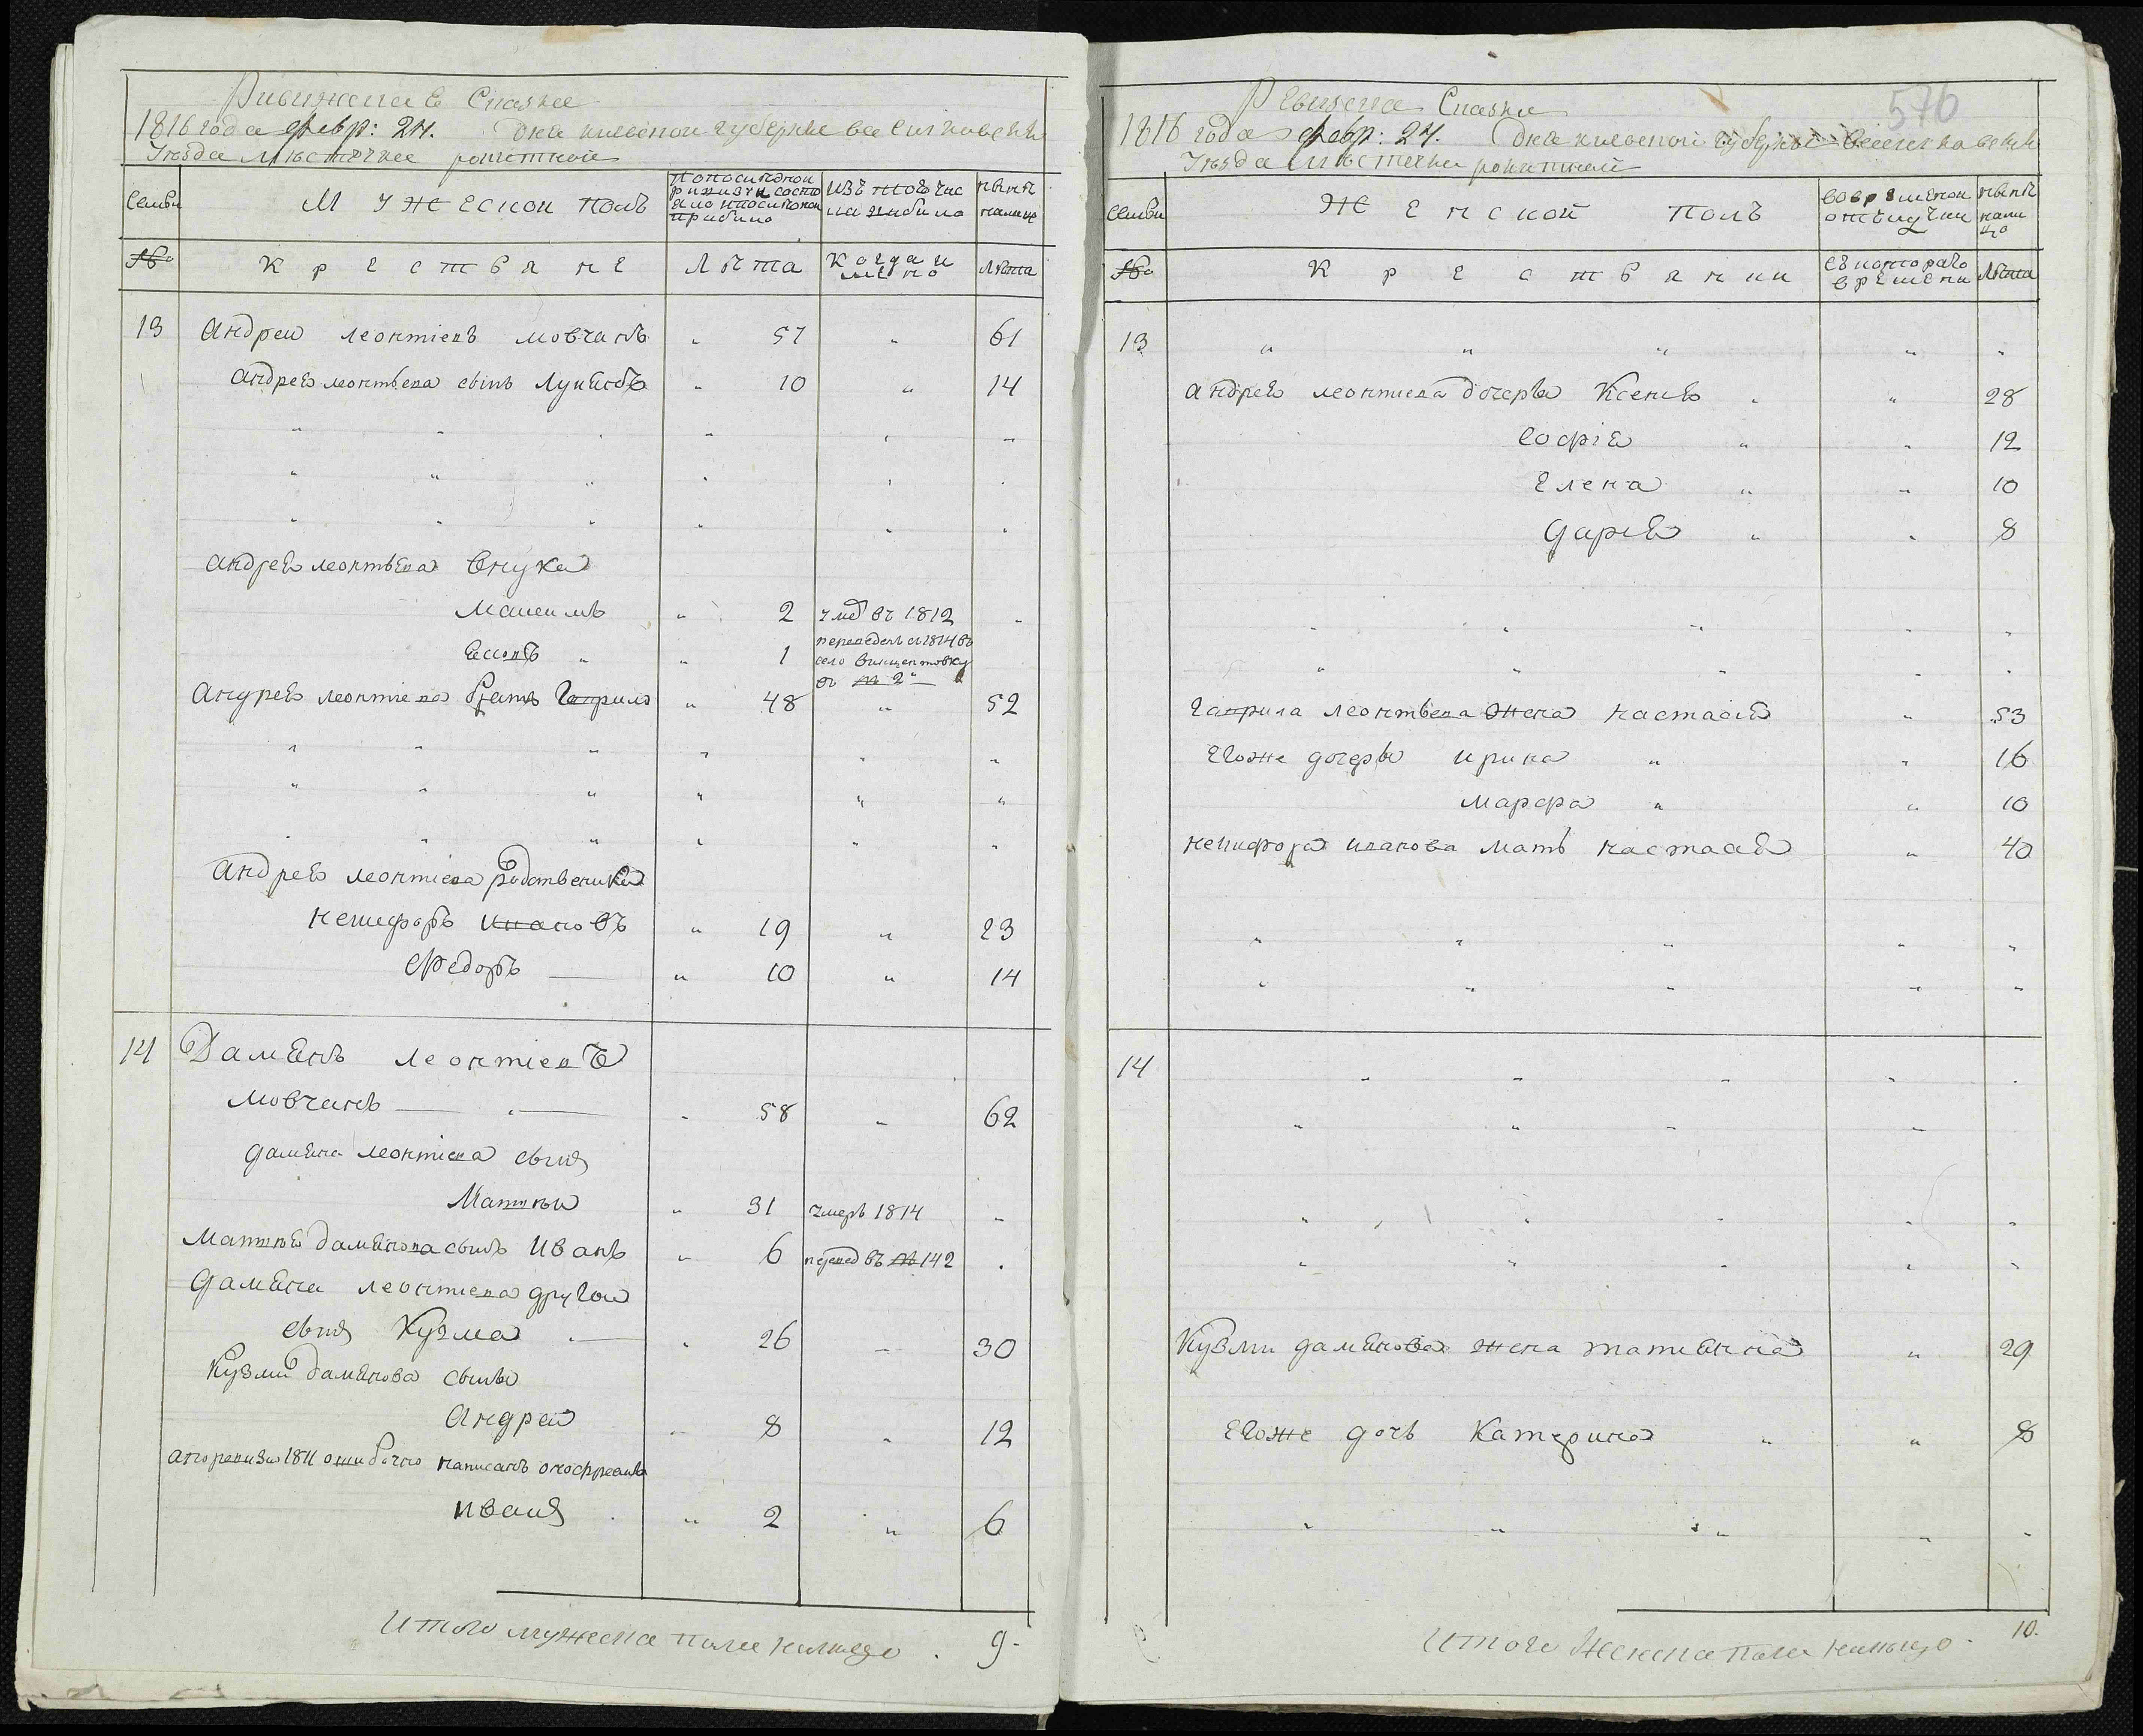 Ревижская Сказка
1816 года февр: 24. Дня киевской губерніи василковскаго
Уезда Местечка рокитной
Семьи
МУЖЕСКОЙ ПОЛЪ
По последней ревизіи состояло и после оной прибыло
изъ того числа выбыло
ныне налицо
№
КРЕСТЬЯНЕ
Лета
Когда и имено
Лета
13 Андрей леонтіевъ мовчанъ " 57 " 61
Андрея леонтьева сынъ Лукьянъ " 10 " 14
Андрея леонтьева внука
Максимъ " 2 умер въ 1812 "
Есипъ " " 1 переведенъ в 1814 въ село винцентовку въ № 2
Андрея леонтіева братъ Гаврило " 48 " 52
Андрея леонтіева родственики
Некифоръ ивановъ " 19 " 23
Федоръ " 10 " 14
14 Дамянъ леонтіевъ
мовчанъ " 58 " 62
дамяна леонтіева сынъ
Матвеи " 31 умеръ 1814 "
Матвея дамянова сынъ Иванъ " 6 перевед въ № 142
Дамяна леонтиева другой
сынъ Кузма 26 30
Кузмы дамянова сыны
Андрей 8 12
а по ревизіи 1811 ошибочно написанъ онофреамъ
иванъ " 2 " 6
Итого мужеска пола налицо . 9.
576
Ревизская Сказка
1816 года февр: 24. Дня киевской губерніи василковскаго
Уезда местечка рокитной
Семьи
ЖЕНСКОЙ ПОЛЪ
Во временной отлучки
ныне налицо
№
КРЕСТЬЯНКИ
Съ котораго времени
Лета
13
андрея леонтиева дочеры Ксеня " 28
Софія " 12
Елена " 10
Даря " 8
Гаврила леонтьева жена настасія " 53
Егоже дочеры ирина " 16
марфа " 10
некифора иванова мать настася " 40
14
Кузмы дамянова жена татияна " 29
Егоже дочь Катерина " 8
Итого женска пола налицо . 10.